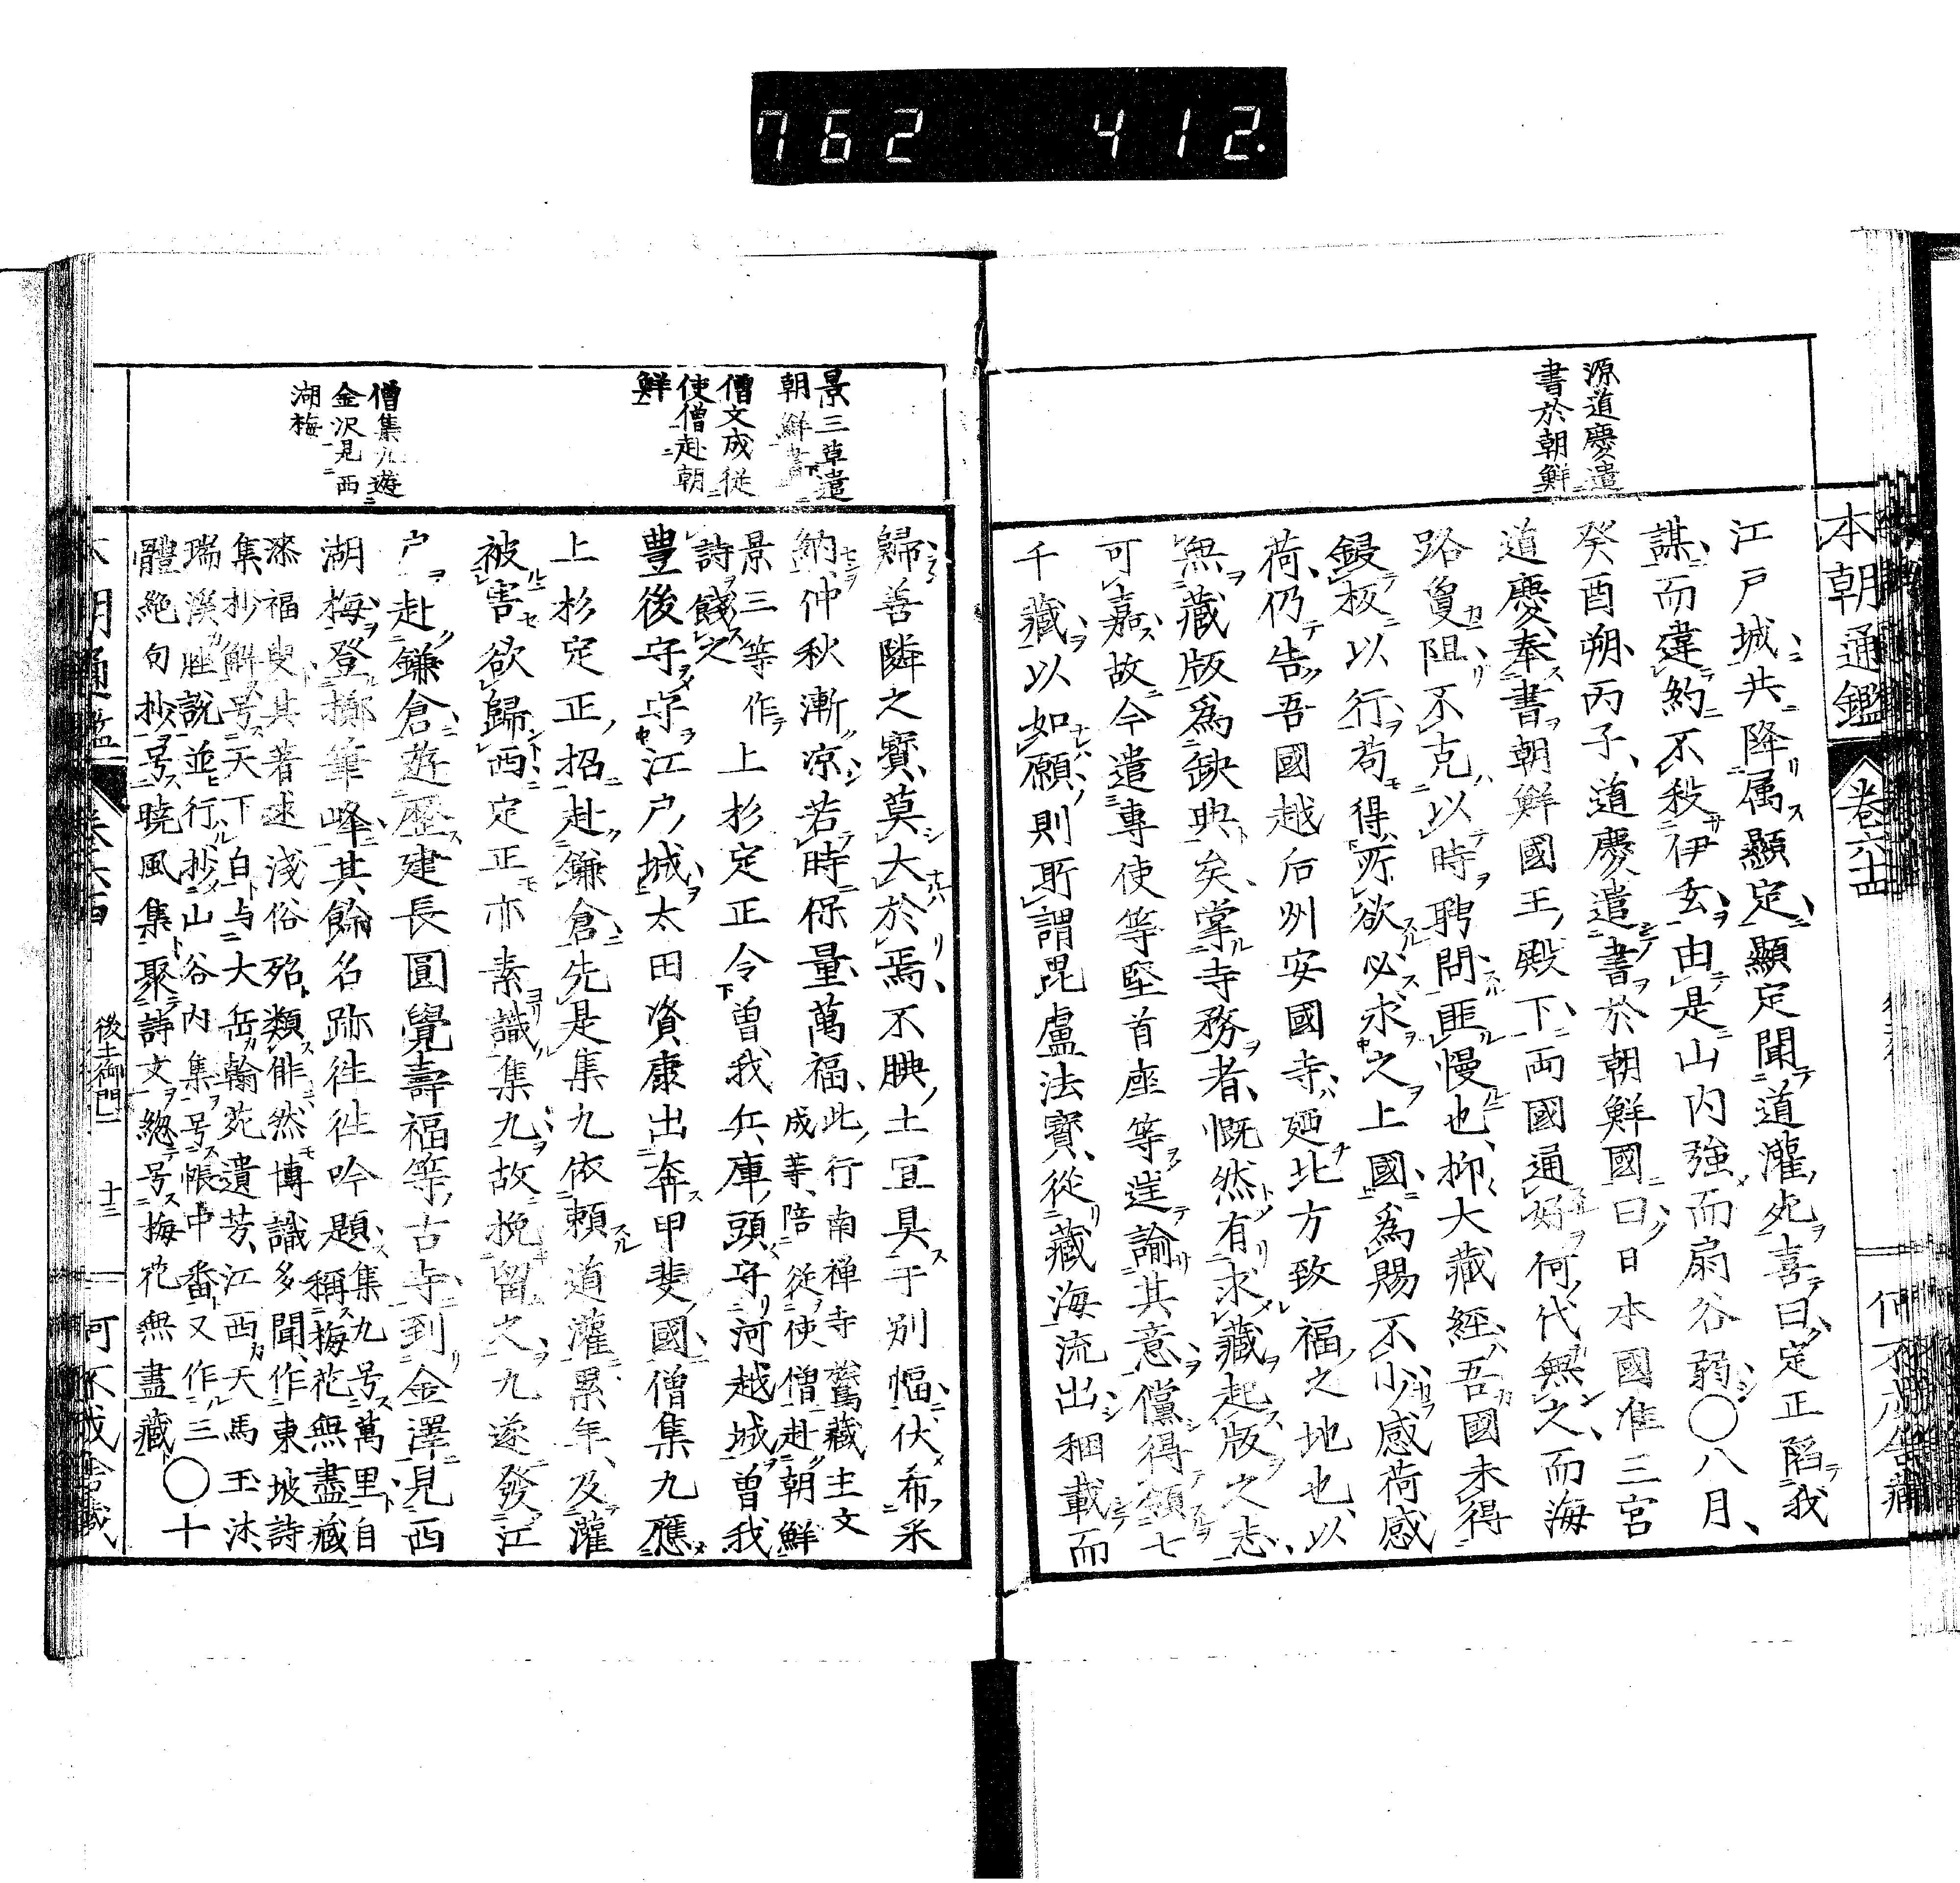 762 412.
本朝通鑑
卷六十四
源道慶遣
書於朝鮮
江戸城共降属顯定顯定聞道灌死喜曰定正䧟我
謀而違約不殺伊玄由是山内強而扇谷弱〇八月
癸酉朔丙子道慶遣書於朝鮮國曰日本國准三宮
道慶奉書朝鮮國王殿下両國通好何代無之而海
路敻阻不克以時聘問匪慢也抑大藏經吾國未得
鋟板以行苟得所欲必求之上國為賜不少感荷感
荷仍告吾國越后州安國寺廼北方致福之地也以
無藏版為缺典矣掌寺務者慨然有求藏起版之志
可嘉故今遣專使等堅首座等逹諭其意儻得頒七
千藏以如願則所謂毘盧法寶從藏海流出稛載而
景三草遣
朝鮮書
僧文成従
使僧赴朝
鮮
僧集九遊
金沢見西
湖梅
歸善隣之寳莫大於焉不腆土冝具于別幅伏希采
納仲秋漸凉若時保量萬福此行南禅寺鸞藏主文
成等陪従使僧赴朝鮮
景三等作
詩餞之
上杉定正令曽我兵庫頭守河越城曽我
豊後守守江户城太田資康出奔甲斐國僧集九應
上杉定正招赴鎌倉先是集九依頼道灌累年及灌
被害欲歸西定正亦素識集九故挽留之九遂發江
户赴鎌倉遊歴建長圓覺壽福等古寺到金澤見西
湖梅登擲筆峰其餘名跡徃徃吟題
集九号萬里自
稱梅花無盡藏
漆福叟其著述淺俗殆類俳然博識多聞作東坡詩
集抄解号天下白与大岳翰苑遺芳江西天馬玉沫
瑞溪脞説並行抄山谷内集号帳中番又作三
體絶句抄号曉風集聚詩文總号梅花無盡藏
〇十
後土御門一
十三